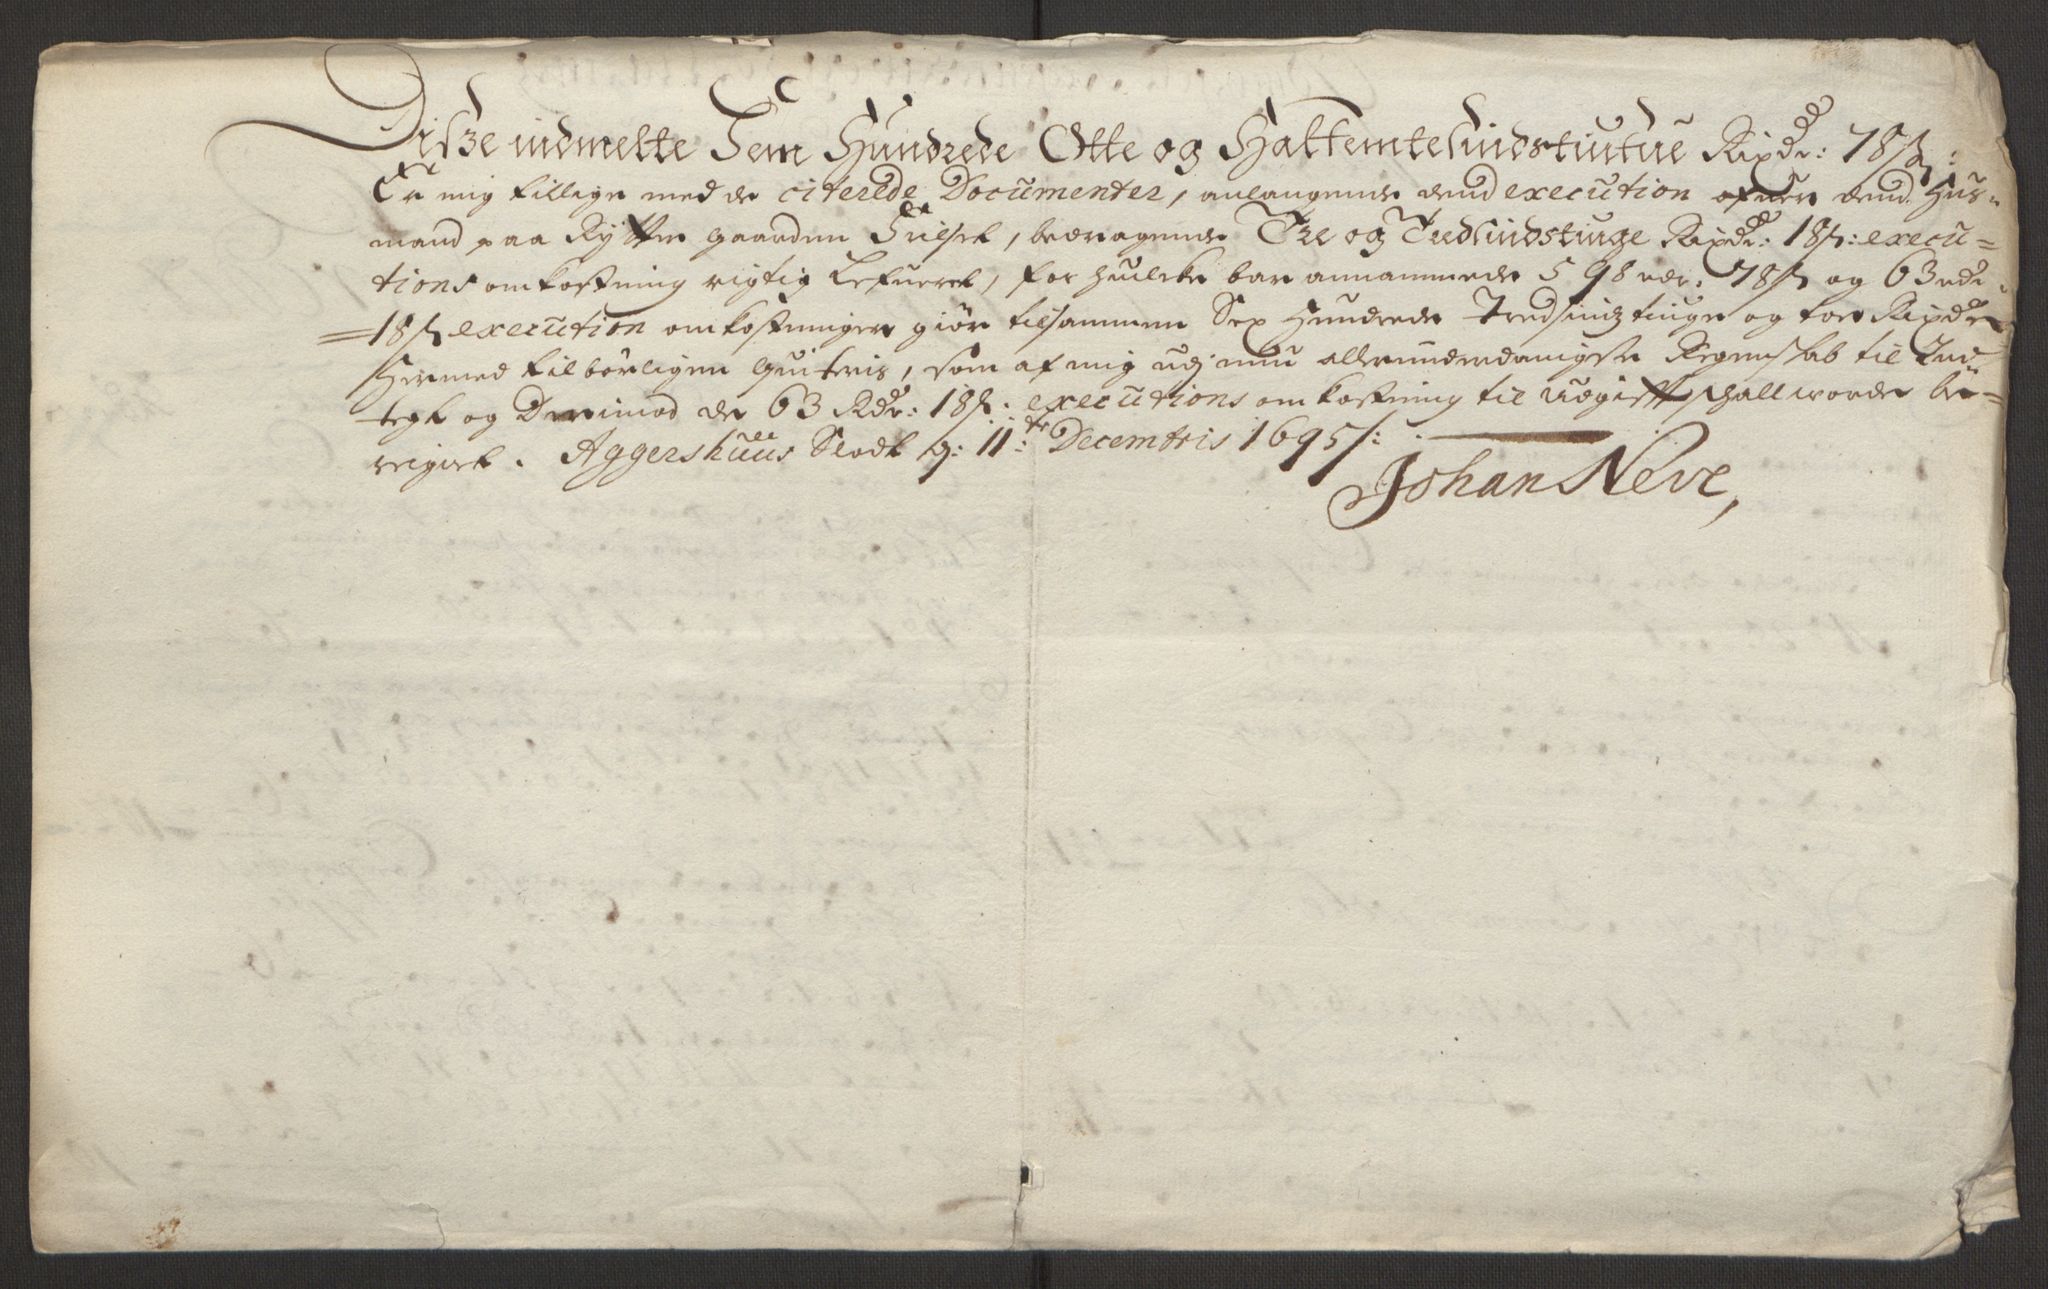 Disse indmelte Fem Hundrede Otte og Halfemtesindstiufue Rixdr: 78 ß:
Er mig tillige med de citerede Documenter, anlangende dend execution ofuer dend Hus-
mand paa Rytter gaarden Fulset, bedragende Tre og Tredsindstiuge Rixdr: 18 ß: execu=
tions omkostning rigtig Lefueret, for huilche bar annammede 598 rdr: 78 ß og 63 rdr
18 ß execution omkostninger giør tilsammen Sex Hundrede Tredsindztiuge og toe Rixdr
Hermed tilbørligen quiteris, som af mig udj min allerunderdanigste Regenskab til Ind
tegt og Derimod de 63 Rdr: 18 ß. executions omkostning til udgift schall worde be=
reignet. Aggershuus Slodt d: 11te Decembris 1695/:
Johan Neve,